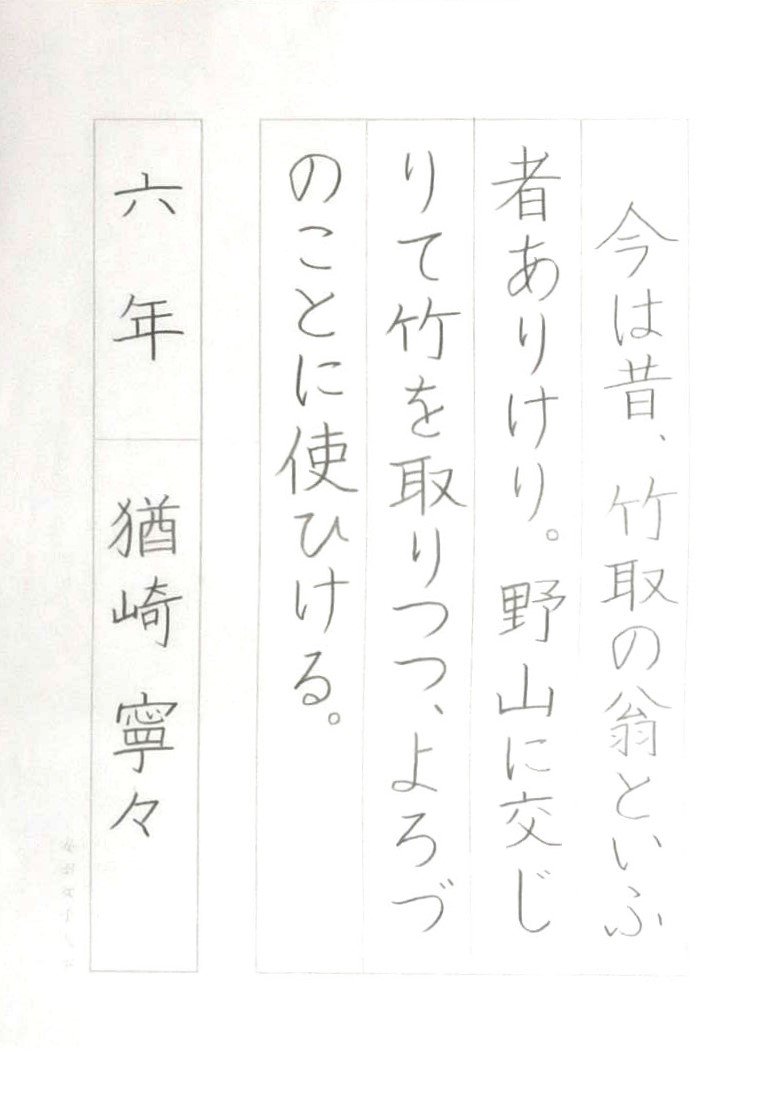 今は昔、竹取の翁といふ
者ありけり。野山に交じ
りて竹を取りつつ、よろづ
のことに使ひける。
六年 猶崎 寧々